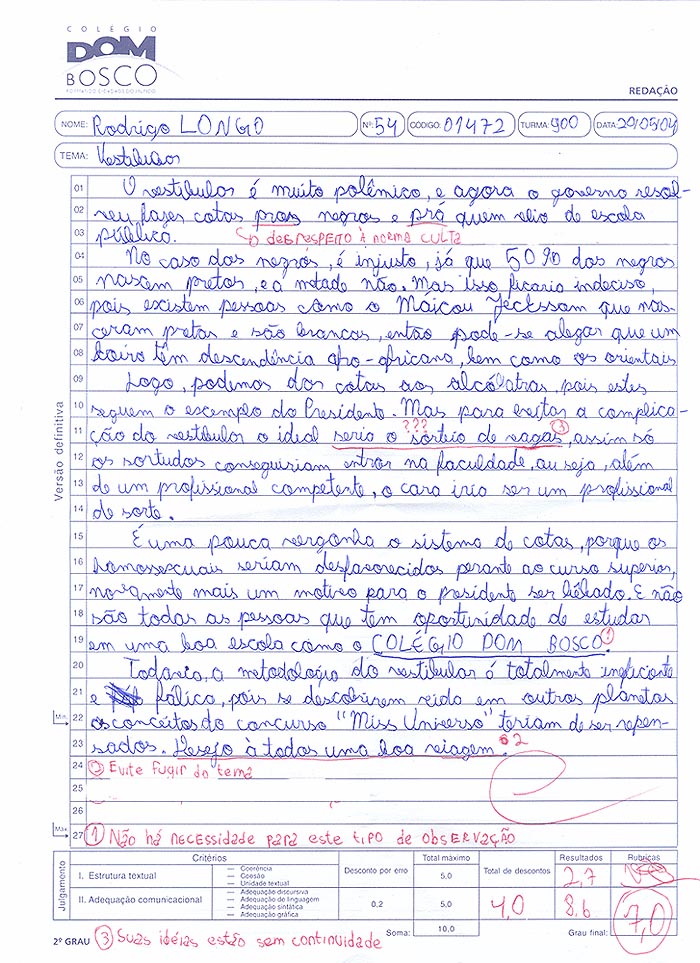 COLÉGIO
DOM
BOSCO
REDAÇÃO
NOME: Rodrigo LONGO Nº: 54 CÓDIGO: 01472 TURMA: 900 DATA: 29/05/04
TEMA: Vestibular
01 O vestibular é muito polêmico, e agora o governo resol-
02 veu fazer cotas pros negros e prá quem veio de escola
03 pública. desrespeito à norma culta
04 No caso dos negros, é injusto, já que 50% dos negros
05 nascem pretos, e a metade não. Mas isso ficaria indeciso,
06 pois existem pessoas como o Máicou Jeckssom que nas-
07 ceram pretas e são brancas, então pode-se alegar que um
08 loiro têm descendência afro-africana, bem como os orientais
09 Logo, podemos dar cotas aos alcólatras, pois estes
10 seguem o exemplo do Presidente. Mas para evitar a complica-
???
11 ção do vestibular o ideal seria o sorteio de vagas, assim só
3
12 os sortudos conseguiriam entrar na faculdade, ou seja, além
13 de um profissional competente, o cara iria ser um profissional
14 de sorte.
15 É uma pouca vergonha o sistema de cotas, porque os
16 homossexuais seriam desfavorecidos perante ao curso superior,
17 novamente mais um motivo para o presidente ser bêbado. E não
18 são todas as pessoas que tem oportunidade de estudar
19 em uma boa escola como o COLÉGIO DOM BOSCO. 1
20 Todavia, a metodologia do vestibular é totalmente ineficiente
21 e fálica, pois se descobrirem vida em outros planetas
22 os conceitos do concurso "Miss Universo" teriam de ser repen-
23 sados. Desejo à todos uma boa viagem. 2
24 2 Evite fugir do tema
25
26
27 1 Não há necessidade para este tipo de observação
Versão definitiva
Mín.
Máx.
Julgamento
Critérios Desconto por erro Total máximo Total de descontos Resultados Rubricas
I. Estrutura textual — Coerência — Coesão — Unidade textual 5,0 2,7
II. Adequação comunicacional — Adequação discursiva — Adequação de linguagem — Adequação sintática — Adequação gráfica 0,2 5,0 4,0 8,6
Soma: 10,0 Grau final: 7,0
2º GRAU 3 Suas idéias estão sem continuidade